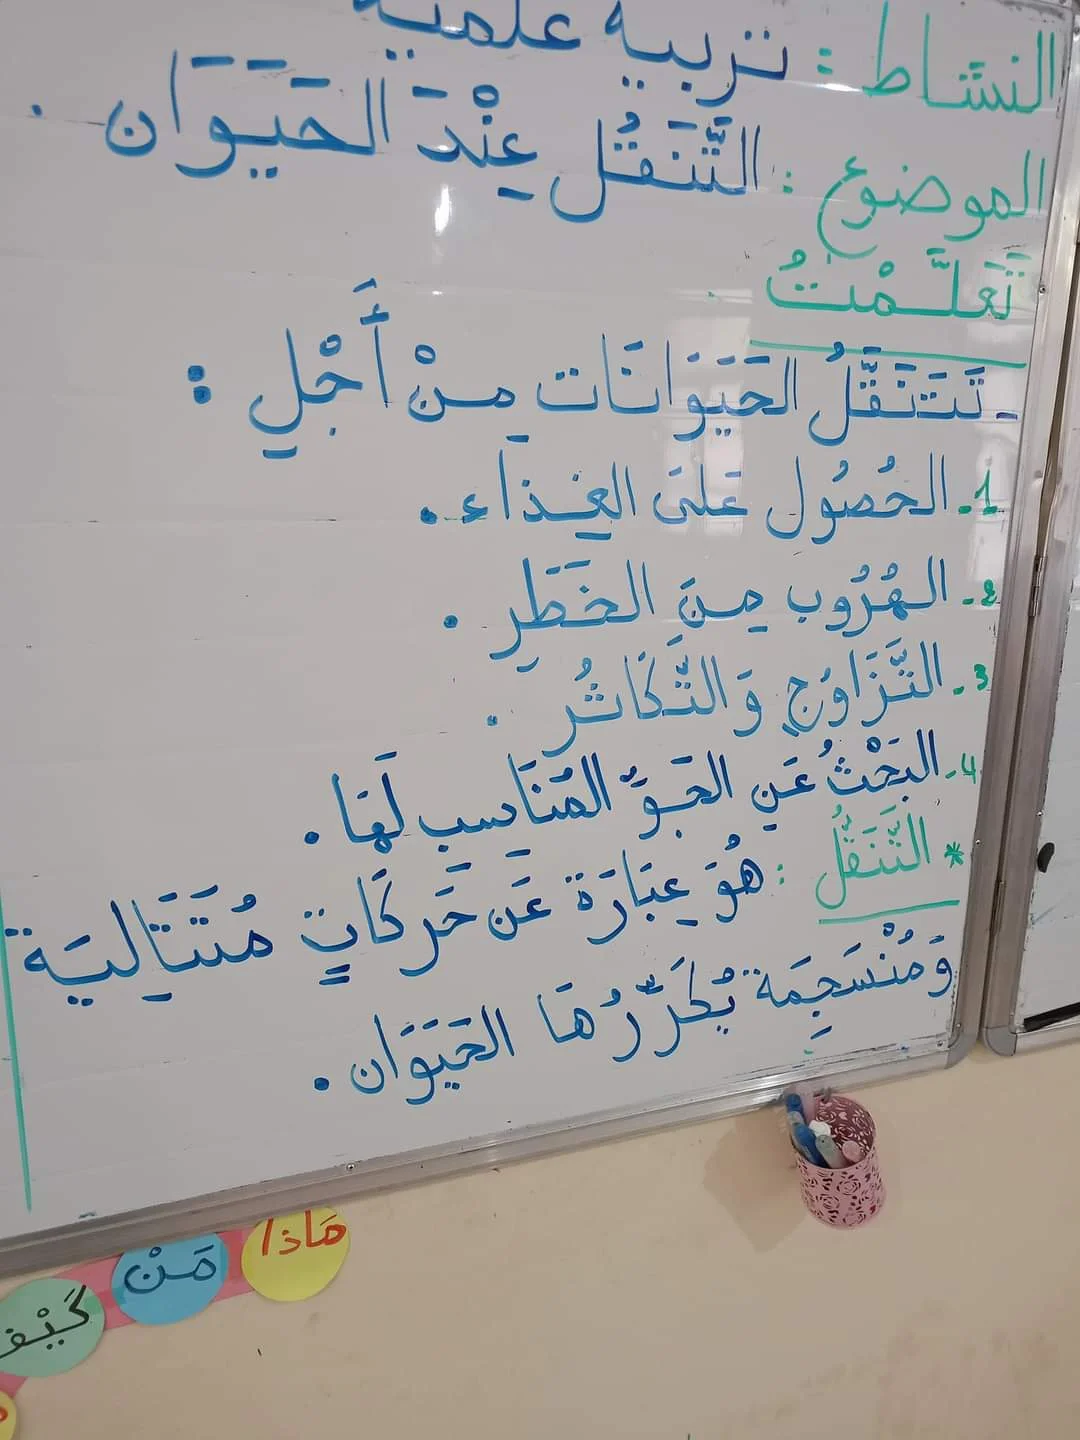 النشاط : تربية علمية
الموضوع : التَّنَقُّل عِنْدَ الحَيَوَان .
تَعَلَّمْتُ
- تَتَنَقَّلُ الحَيَوَانَات مِنْ أَجْلِ :
1- الحُصُول عَلَى الغِذَاء .
2- الهُرُوب مِنَ الخَطَرِ .
3- التَّزَاوُجِ وَالتَّكَاثُر .
4- البَحْثُ عَنِ الجَوِّ المُنَاسِبِ لَهَا .
* التَّنَقُّلُ : هُوَ عِبَارَة عَن حَرَكَاتٍ مُتَتَالِيَة
وَمُنْسَجِمَة يُكَرِّرُهَا الحَيَوَان .
مَاذَا
مَنْ
كَيْف